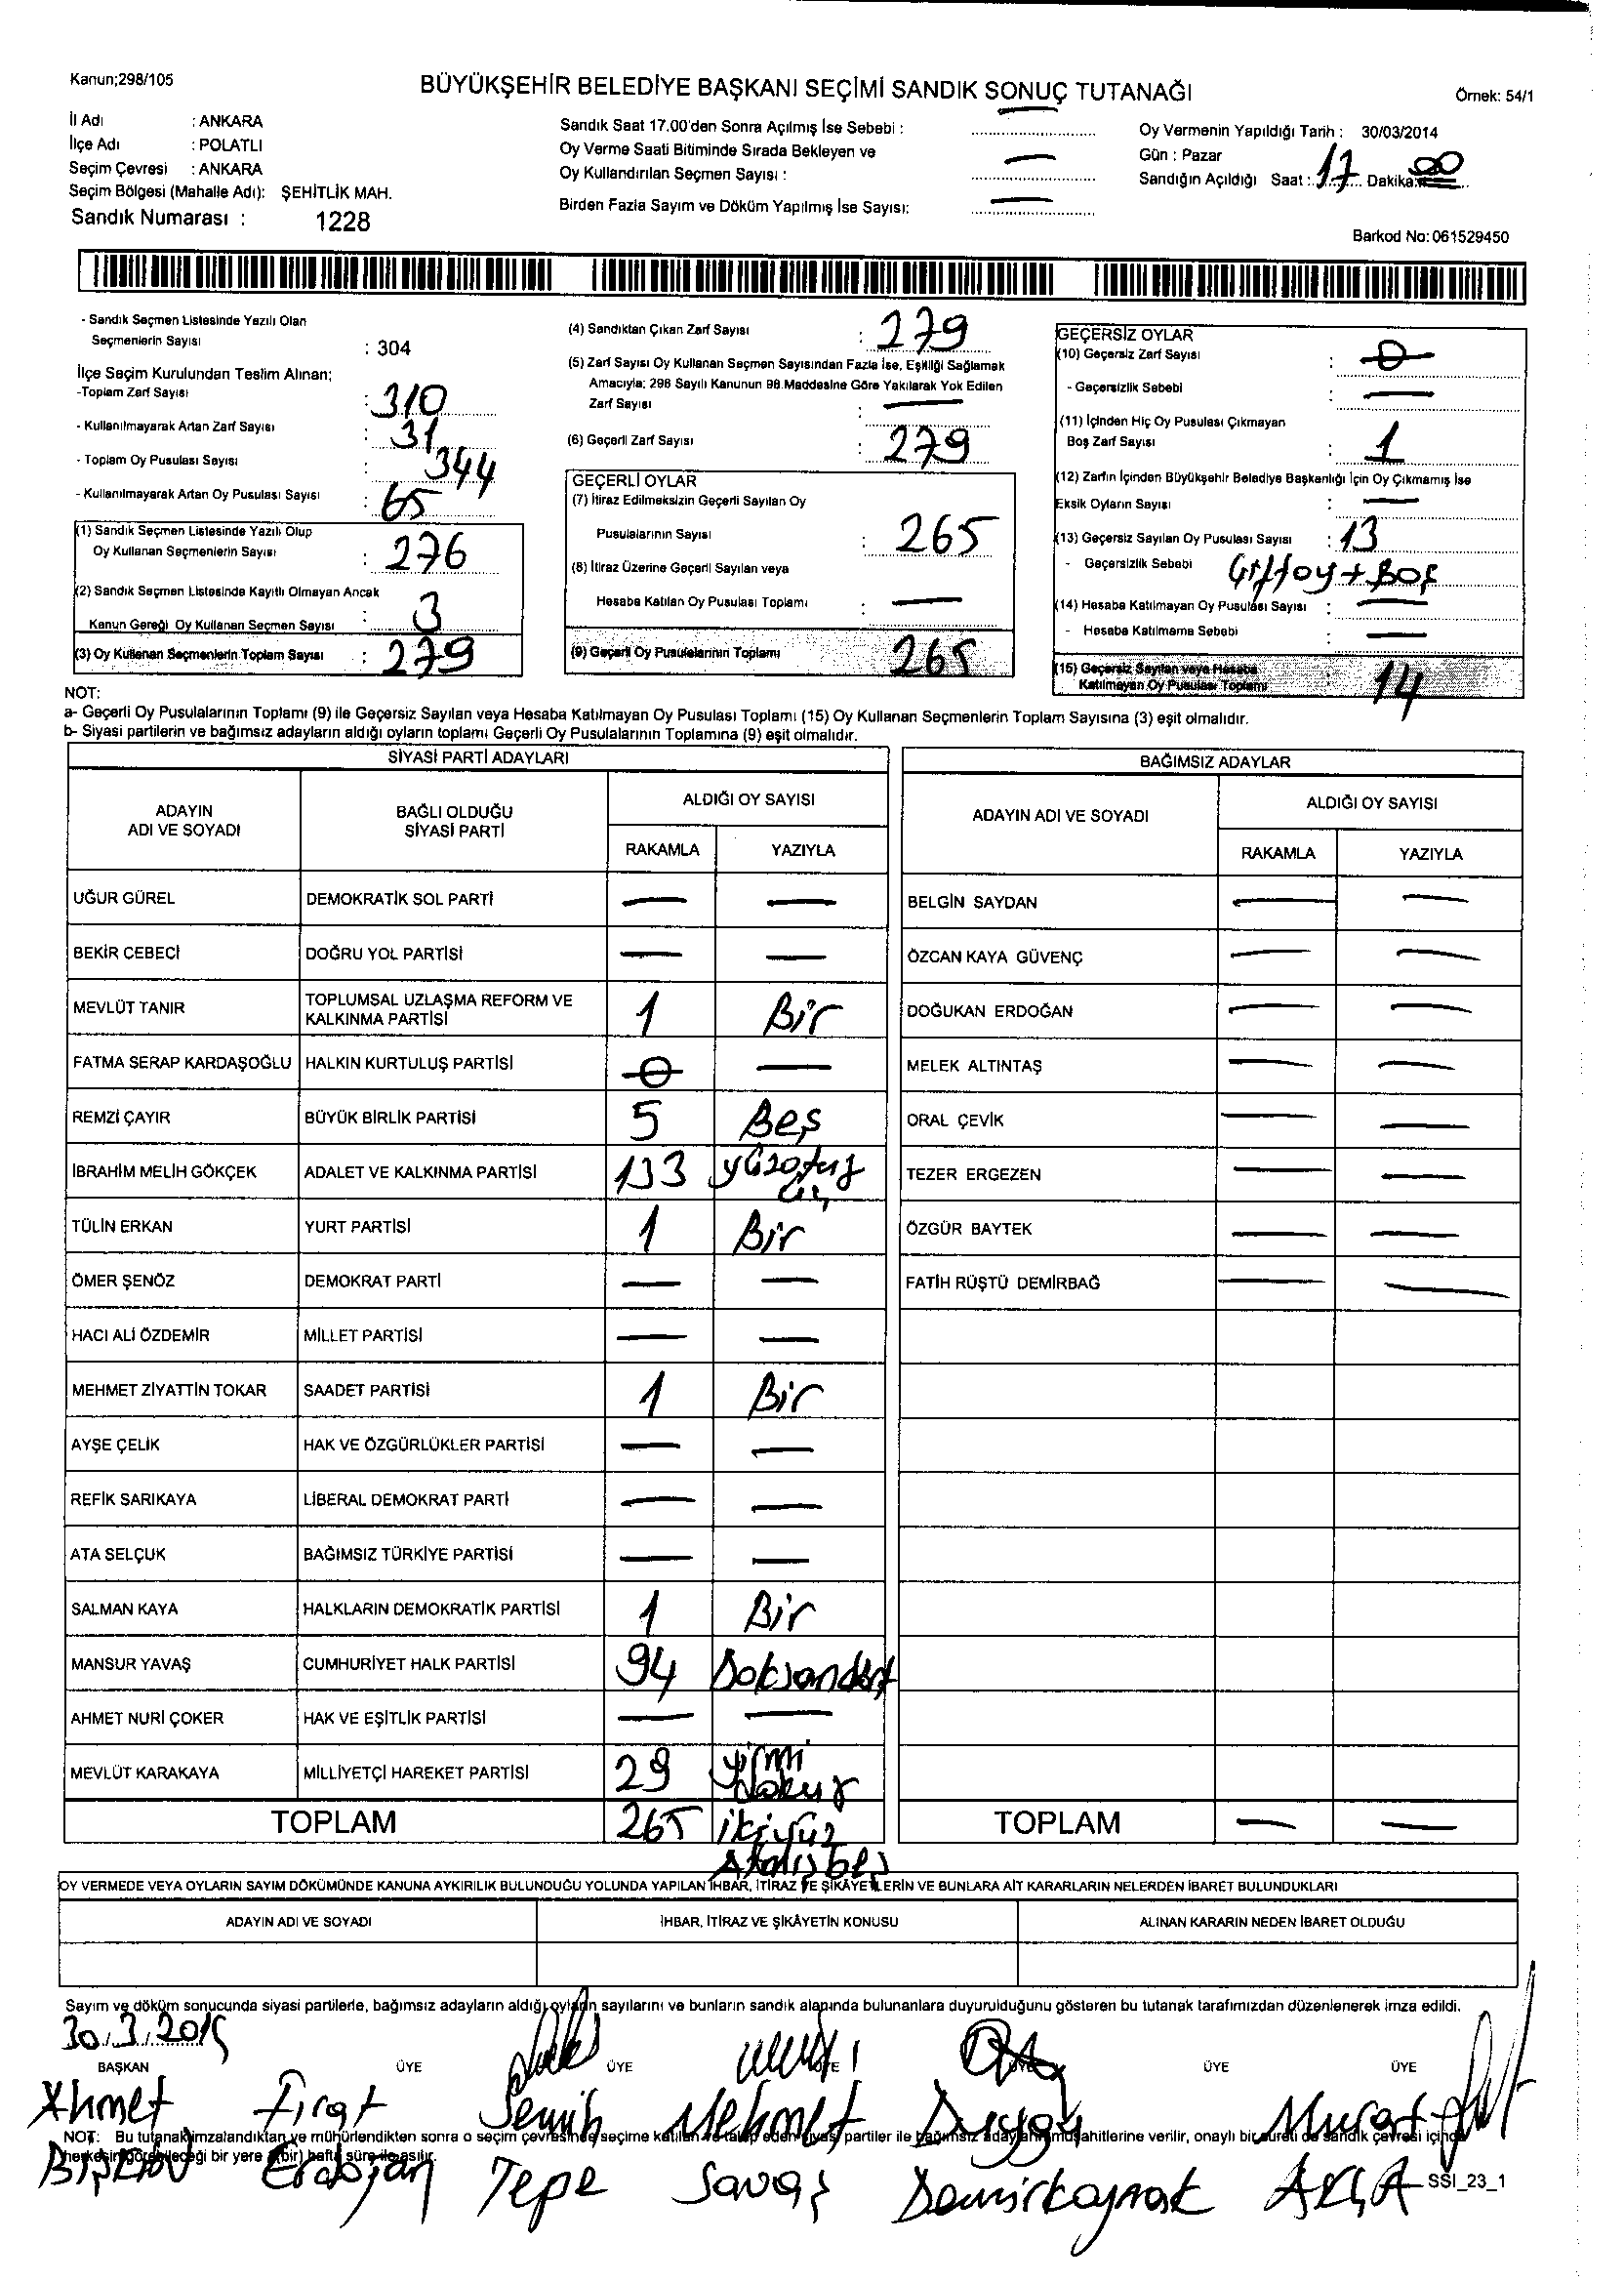 Kanun;298/105
BÜYÜKŞEHİR BELEDİYE BAŞKANI SEÇİMİ SANDIK SONUÇ TUTANAĞI
Örnek: 54/1
İl Adı : ANKARA
İlçe Adı : POLATLI
Seçim Çevresi : ANKARA
Seçim Bölgesi (Mahalle Adı): ŞEHİTLİK MAH.
Sandık Numarası : 1228
Sandık Saat 17.00'den Sonra Açılmış İse Sebebi : —
Oy Verme Saati Bitiminde Sırada Bekleyen ve
Oy Kullandırılan Seçmen Sayısı : —
Birden Fazla Sayım ve Döküm Yapılmış İse Sayısı: —
Oy Vermenin Yapıldığı Tarih : 30/03/2014
Gün : Pazar
Sandığın Açıldığı Saat : 17 Dakika: 00
Barkod No: 061529450
- Sandık Seçmen Listesinde Yazılı Olan
Seçmenlerin Sayısı : 304
İlçe Seçim Kurulundan Teslim Alınan;
-Toplam Zarf Sayısı : 310
- Kullanılmayarak Artan Zarf Sayısı : 31
- Toplam Oy Pusulası Sayısı : 344
- Kullanılmayarak Artan Oy Pusulası Sayısı : 65
(1) Sandık Seçmen Listesinde Yazılı Olup
Oy Kullanan Seçmenlerin Sayısı : 276
(2) Sandık Seçmen Listesinde Kayıtlı Olmayan Ancak
Kanun Gereği Oy Kullanan Seçmen Sayısı : 3
(3) Oy Kullanan Seçmenlerin Toplam Sayısı : 279
(4) Sandıktan Çıkan Zarf Sayısı : 279
(5) Zarf Sayısı Oy Kullanan Seçmen Sayısından Fazla İse, Eşitliği Sağlamak
Amacıyla; 298 Sayılı Kanunun 98.Maddesine Göre Yakılarak Yok Edilen
Zarf Sayısı : —
(6) Geçerli Zarf Sayısı : 279
GEÇERLİ OYLAR
(7) İtiraz Edilmeksizin Geçerli Sayılan Oy
Pusulalarının Sayısı : 265
(8) İtiraz Üzerine Geçerli Sayılan veya
Hesaba Katılan Oy Pusulası Toplamı : —
(9) Geçerli Oy Pusulalarının Toplamı 265
GEÇERSİZ OYLAR
(10) Geçersiz Zarf Sayısı : 0
- Geçersizlik Sebebi : —
(11) İçinden Hiç Oy Pusulası Çıkmayan
Boş Zarf Sayısı : 1
(12) Zarfın İçinden Büyükşehir Belediye Başkanlığı İçin Oy Çıkmamış İse
Eksik Oyların Sayısı : —
(13) Geçersiz Sayılan Oy Pusulası Sayısı : 13
- Geçersizlik Sebebi Çiftoy + Boş
(14) Hesaba Katılmayan Oy Pusulası Sayısı : —
- Hesaba Katılmama Sebebi : —
(15) Geçersiz Sayılan veya Hesaba
Katılmayan Oy Pusulası Toplamı : 14
NOT:
a- Geçerli Oy Pusulalarının Toplamı (9) ile Geçersiz Sayılan veya Hesaba Katılmayan Oy Pusulası Toplamı (15) Oy Kullanan Seçmenlerin Toplam Sayısına (3) eşit olmalıdır.
b- Siyasi partilerin ve bağımsız adayların aldığı oyların toplamı Geçerli Oy Pusulalarının Toplamına (9) eşit olmalıdır.
SİYASİ PARTİ ADAYLARI
ADAYIN ADI VE SOYADI
BAĞLI OLDUĞU SİYASİ PARTİ
ALDIĞI OY SAYISI
RAKAMLA YAZIYLA
UĞUR GÜREL DEMOKRATİK SOL PARTİ — —
BEKİR CEBECİ DOĞRU YOL PARTİSİ — —
MEVLÜT TANIR TOPLUMSAL UZLAŞMA REFORM VE KALKINMA PARTİSİ 1 Bir
FATMA SERAP KARDAŞOĞLU HALKIN KURTULUŞ PARTİSİ 0 —
REMZİ ÇAYIR BÜYÜK BİRLİK PARTİSİ 5 Beş
İBRAHİM MELİH GÖKÇEK ADALET VE KALKINMA PARTİSİ 133 yüzotuz üç
TÜLİN ERKAN YURT PARTİSİ 1 Bir
ÖMER ŞENÖZ DEMOKRAT PARTİ — —
HACI ALİ ÖZDEMİR MİLLET PARTİSİ — —
MEHMET ZİYATTİN TOKAR SAADET PARTİSİ 1 Bir
AYŞE ÇELİK HAK VE ÖZGÜRLÜKLER PARTİSİ — —
REFİK SARIKAYA LİBERAL DEMOKRAT PARTİ — —
ATA SELÇUK BAĞIMSIZ TÜRKİYE PARTİSİ — —
SALMAN KAYA HALKLARIN DEMOKRATİK PARTİSİ 1 Bir
MANSUR YAVAŞ CUMHURİYET HALK PARTİSİ 94 Doksandört
AHMET NURİ ÇOKER HAK VE EŞİTLİK PARTİSİ — —
MEVLÜT KARAKAYA MİLLİYETÇİ HAREKET PARTİSİ 29 yirmi Dokuz
TOPLAM 265 ikiyüz Atmış beş
BAĞIMSIZ ADAYLAR
ADAYIN ADI VE SOYADI
ALDIĞI OY SAYISI
RAKAMLA YAZIYLA
BELGİN SAYDAN — —
ÖZCAN KAYA GÜVENÇ — —
DOĞUKAN ERDOĞAN — —
MELEK ALTINTAŞ — —
ORAL ÇEVİK — —
TEZER ERGEZEN — —
ÖZGÜR BAYTEK — —
FATİH RÜŞTÜ DEMİRBAĞ — —
TOPLAM — —
OY VERMEDE VEYA OYLARIN SAYIM DÖKÜMÜNDE KANUNA AYKIRILIK BULUNDUĞU YOLUNDA YAPILAN İHBAR, İTİRAZ VE ŞİKÂYETLERİN VE BUNLARA AİT KARARLARIN NELERDEN İBARET BULUNDUKLARI
ADAYIN ADI VE SOYADI İHBAR, İTİRAZ VE ŞİKÂYETİN KONUSU ALINAN KARARIN NEDEN İBARET OLDUĞU
Sayım ve döküm sonucunda siyasi partilerle, bağımsız adayların aldığı oyların sayılarını ve bunların sandık alanında bulunanlara duyurulduğunu gösteren bu tutanak tarafımızdan düzenlenerek imza edildi.
BAŞKAN ÜYE ÜYE ÜYE ÜYE ÜYE ÜYE
Ahmet Fırat Semih Mehmet Duygu Murat
NOT: Bu tutanak imzalandıktan ve mühürlendikten sonra o seçim çevresinde seçime katılan ve talep eden siyasi partiler ile bağımsız adayların müşahitlerine verilir, onaylı bir sureti de sandık çevresi içinde
herkesin görebileceği bir yere (bir) hafta süre ile asılır.
Erdoğan Tepe Savaş Demirkaynak AKÇA
SSİ_23_1